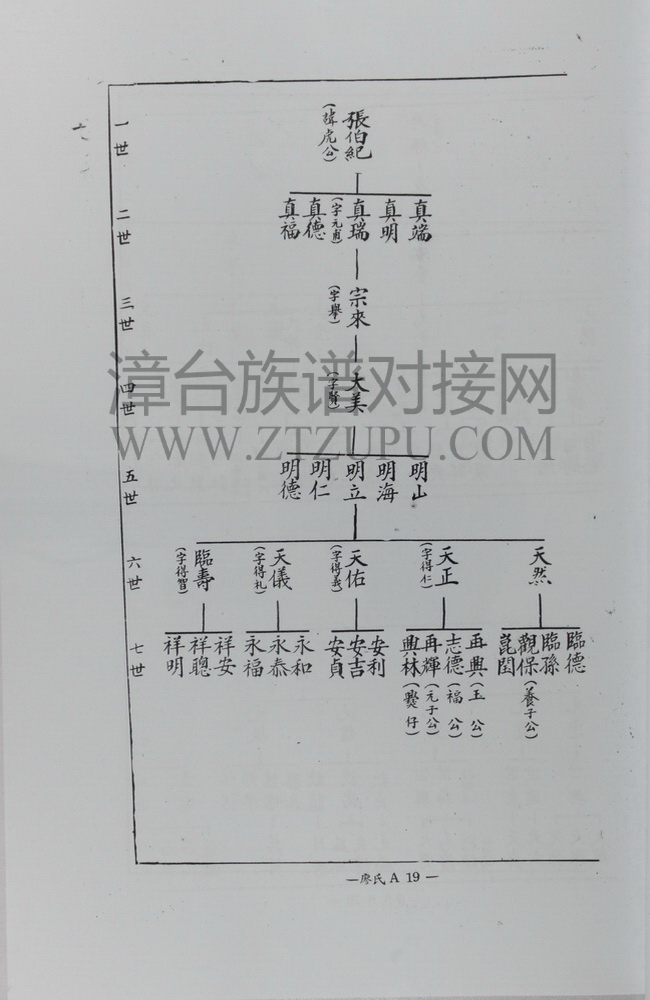 一世
張伯紀
(諱虎公)
二世
真端
真明
真瑞
(字元直)
真德
真福
三世
宗來
(字舉)
四世
大美
(字賢)
五世
明山
明海
明立
明仁
明德
六世
天然
天正
(字得仁)
天佑
(字得義)
天儀
(字得礼)
臨壽
(字得智)
七世
臨德
臨孫
觀保
(養子公)
崑閏
再興
(玉公)
志德
(福公)
再輝
(元子公)
興林
(爨仔)
安利
安吉
安貞
永和
永泰
永福
祥安
祥聰
祥明
漳台族谱对接网
WWW.ZTZUPU.COM
—廖氏 A 19—